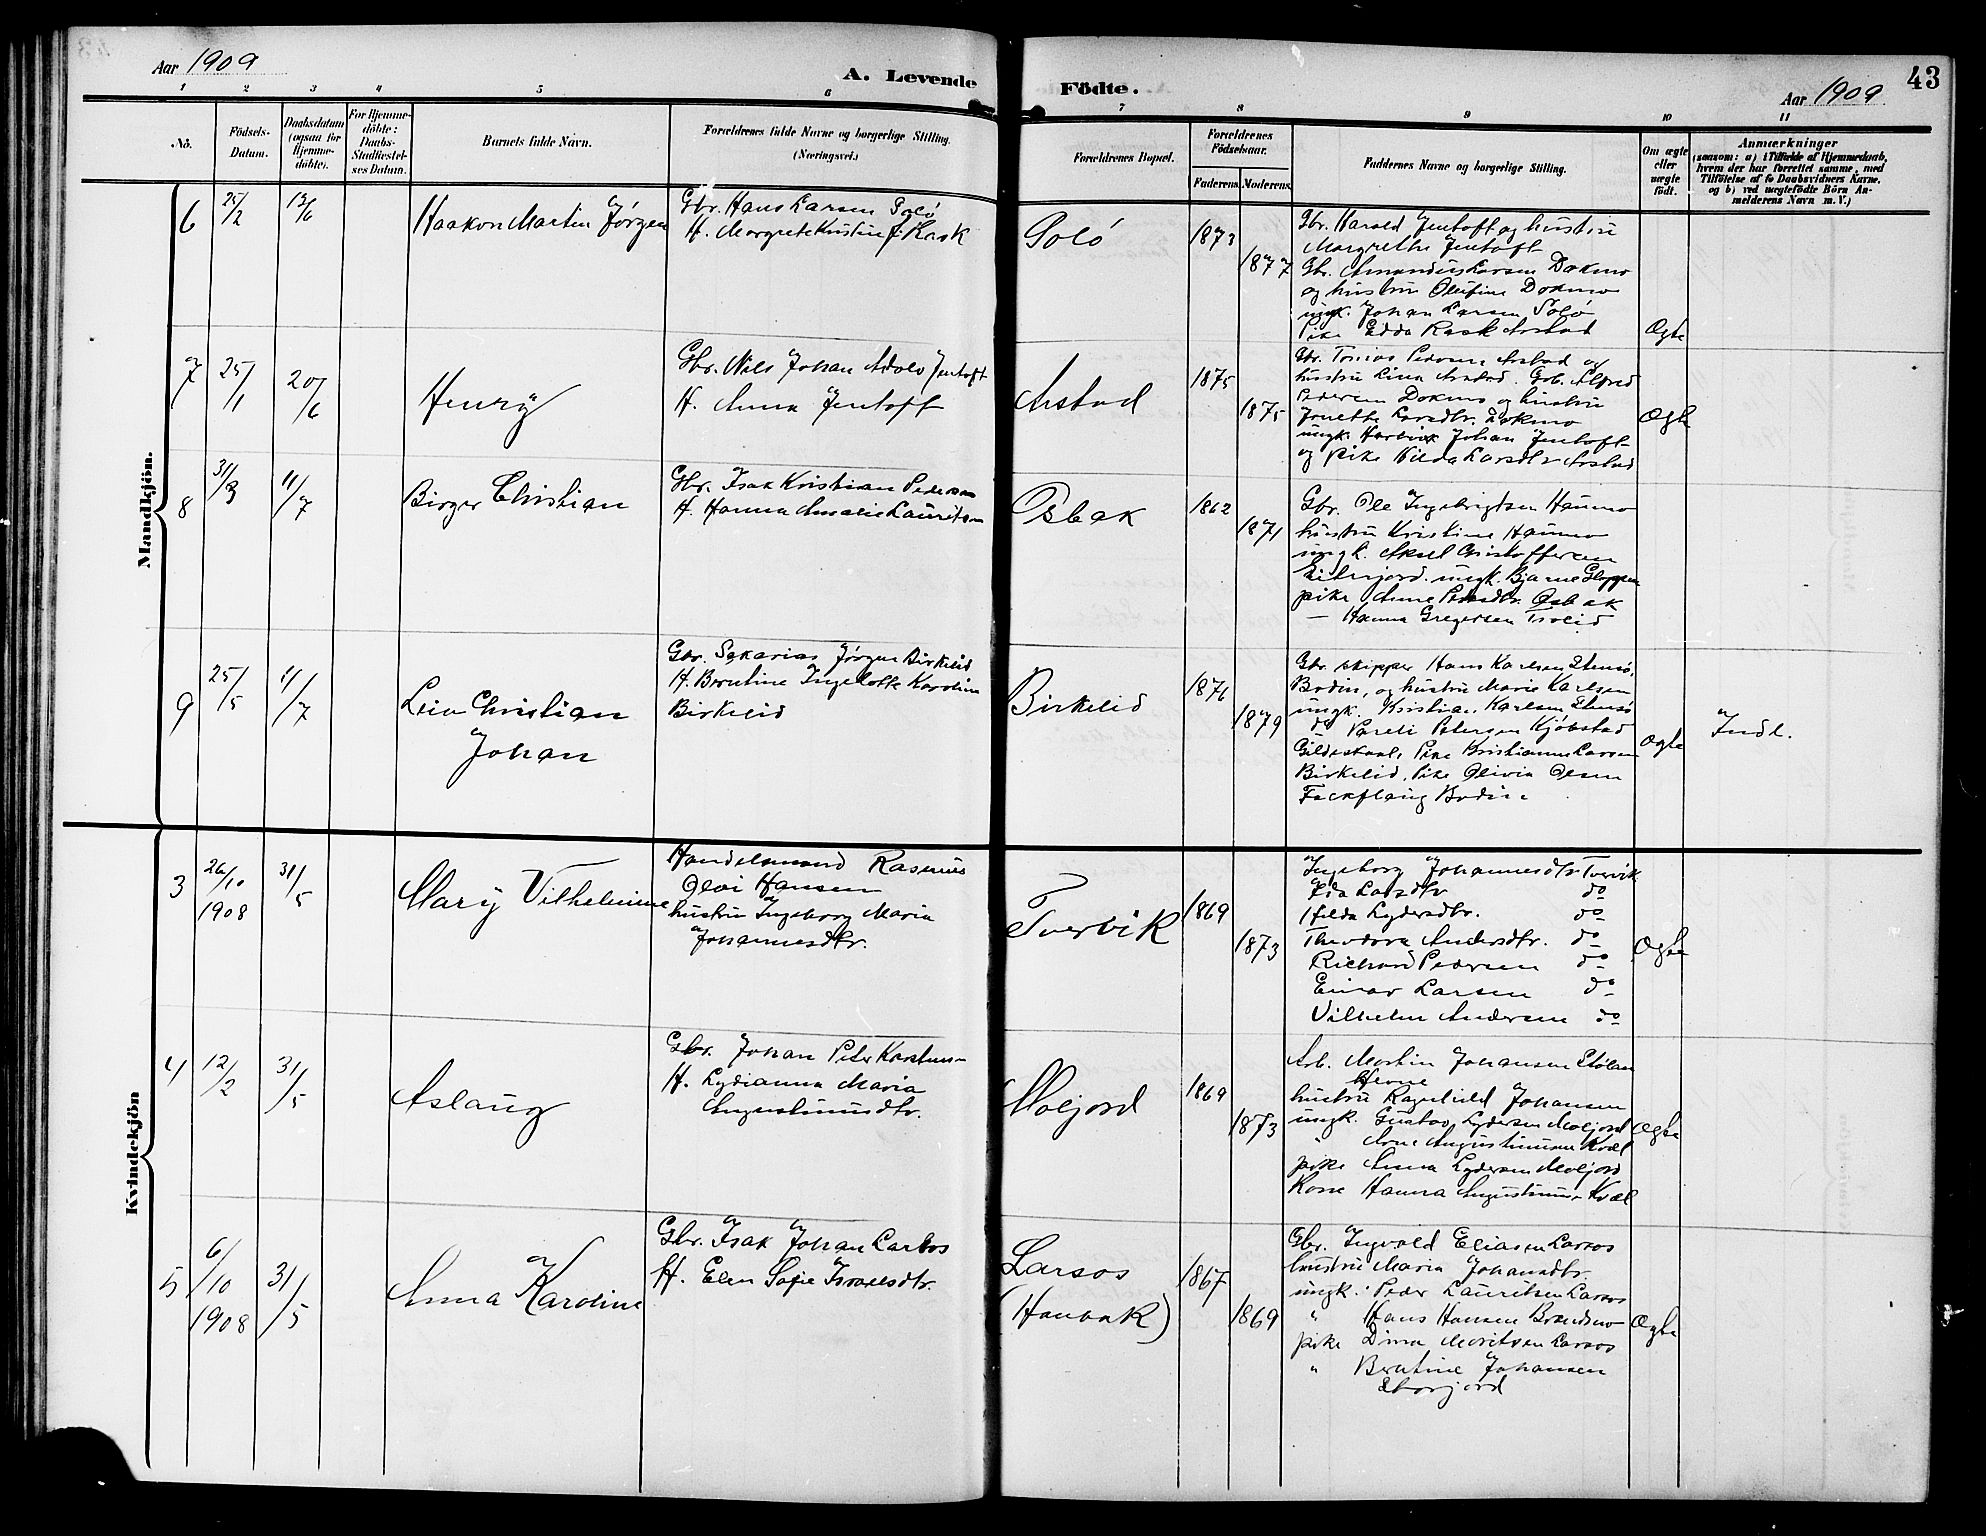 Aar 1909
A. Levende
Födte.
Aar 1909
43
1 2 3 4 5 6 7 8 9 10 11
No.
Födsels-
Datum.
Daabsdatum
(ogsaa for
Hjemme-
döbte).
For Hjemme-
döbte:
Daabs-
Stadfæstel-
ses Datum.
Barnets fulde Navn.
Forældrenes fulde Navne og borgerlige Stilling.
(Næringsvei.)
Forældrenes Bopæl.
Forældrenes
Födselsaar.
Faderens. Moderens.
Faddernes Navne og borgerlige Stilling.
Om ægte
eller
uægte
födt.
Anmærkninger
(saasom: a) i Tilfælde af Hjemmedaab,
hvem der har forrettet samme, med
Tilföielse af to Daabsvidners Navne,
og b) ved uægtefödte Börn An-
melderens Navn m. V.)
Mandkjön.
6
25/2
13/6
Haakon Martin Jörgen
Gbr. Hans Larsen Solö
H. Margrete Kristine f. Rask
Solö
1873
1877
Gbr. Harald Jentoft og hustru
Margrethe Jentoft
Gbr. Amandus Larsen Dokmo
og hustru Olufine Dokmo
ungk. Johan Larsen Solö
Pike Edda Rask Arstad
Ægte
7
25/1
20/6
Henry
Gbr. Nils Johan Adolv Jentoft
H. Anna Jentoft
Arstad
1875
1875
Gbr. Tomas Pedersen Arstad og
hustru Lina Arstad. Gb. Alfred
Pedersen Dokmo og hustru
Jonette Larsdtr. Dokmo
ungk. Johan Jentoft
og pike Hilda Larsdtr Arstad
Ægte
8
31/3
11/7
Birger Christian
Gbr. Isak Kristian Pedersen
H. Hanna Amalie Lauritsen
Osbak
1862
1871
Gbr. Ole Ingebrigtsen Haumo
hustru Kristine Haumo
ungk. Aksel Cristoffersen
ungk. Bjarne
pike Anne Pedersdtr. Osbak
— Hanna Gregersen
9
25/5
11/7
Leiv Christian
Johan
Gbr. Sakarias Jörgen Birkelid
H. Berntine Ingelotte Karoline
Birkelid
Birkelid
1876
1879
Gbr. skipper Hans Karlsen Stensö,
Bodin, og hustru Marie Karlsen
ungk. Kristian Karlsen Stensö
do Pareli Petersen Kjöbstad
Gildeskaal, Pike Kristianne Larsen
Birkelid, Pike Olivia Olsen
Bodin
Ægte
Indl.
Kvindekjön
3
26/10
1908
31/5
Mary Vilhelmine
Handelsmand Rasmus
Olai Hansen
hustru Ingeborg Maria
Johannesdtr.
Tvervik
1869
1873
Ingeborg Johannesdtr Tvervik
Ida Larsdtr do
Hilda Lydersdtr. do
Theodora Andersdtr. do
Richard Pedersen do
Einar Larsen do
Vilhelm Andersen do
Ægte
4
12/2
31/5
Aslaug
Gbr. Johan Peter Karstensen
H. Lydianna Maria
Augustinusdtr.
Moljord
1869
1873
Arb. Martin Johansen Stölan
Hevne
hustru Ragnhild Johansen
ungk. Gustav Lydersen Moljord
" Arne Augustinussen Kvæl
pike Anna Lydersen Moljord
Kone Hanna Augustinusn Kvæl
Ægte
5
6/10
1908
31/5
Anna Karoline
Gbr. Isak Johan Larsos
H. Elen Sofie Israelsdtr.
Larsos
(Haubak)
1867
1869
Gbr. Ingvald Eliasen Larsos
hustru Maria Johansdtr.
ungk. Peder Lauritsen Larsos
" Hans Hansen Brandsmo
pike Dina Moritsen Larsos
" Berntine Johansen
Storjord
Ægte